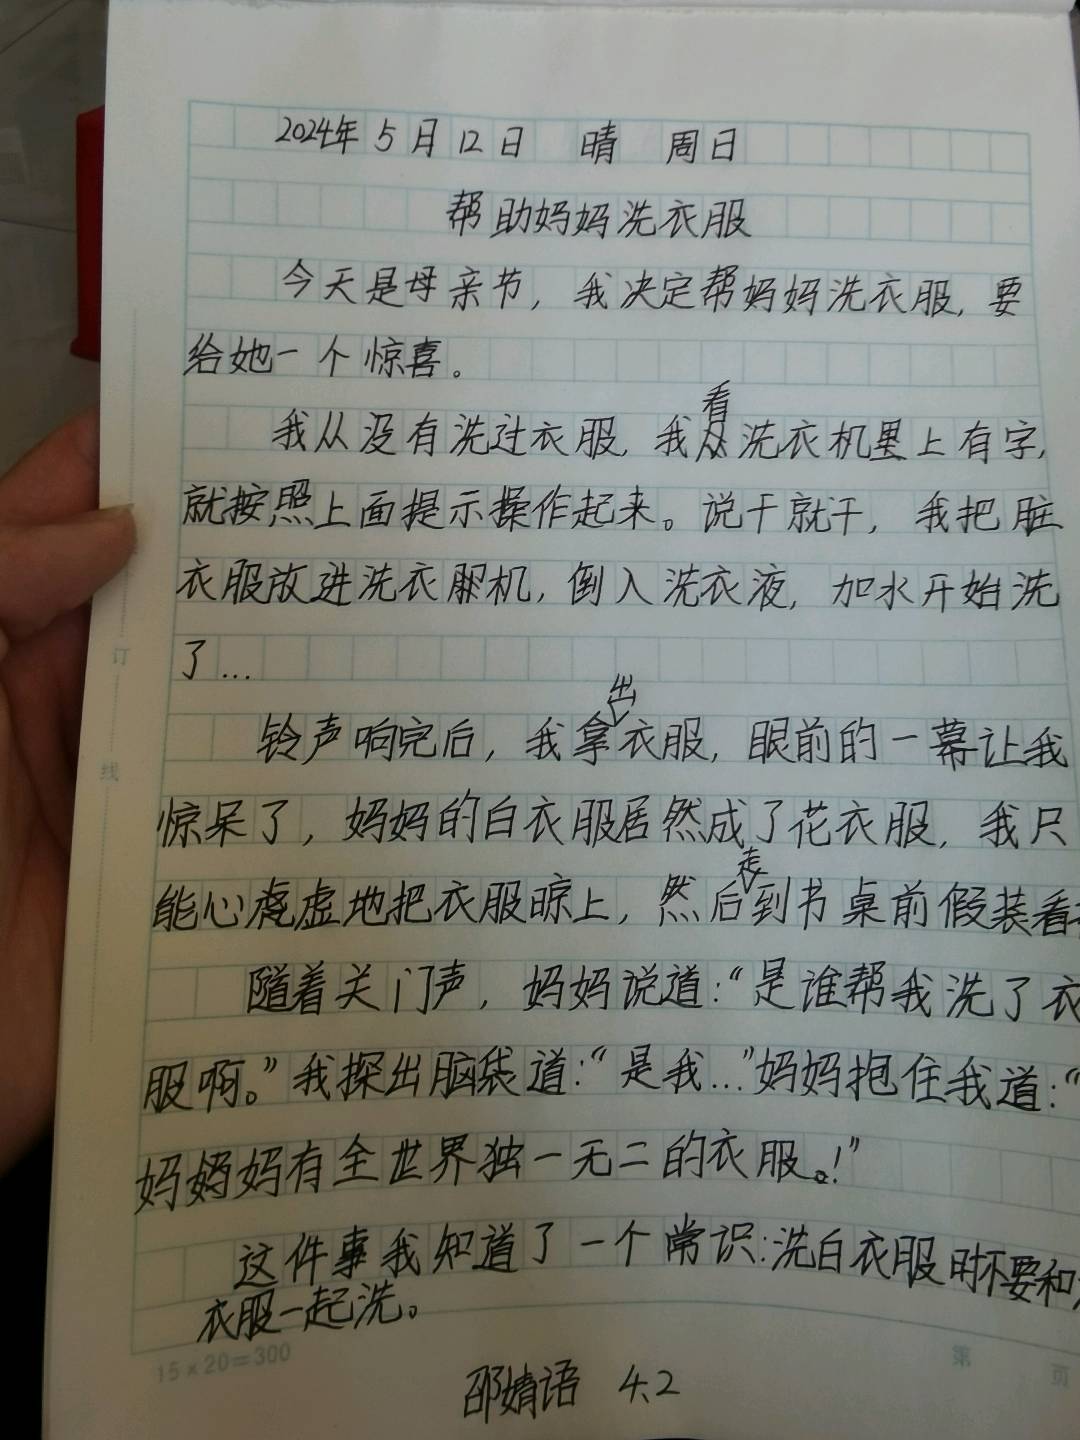 2024年5月12日 晴 周日
帮助妈妈洗衣服
今天是母亲节，我决定帮妈妈洗衣服，要
给她一个惊喜。
我从没有洗过衣服，我看洗衣机里上有字，
就按照上面提示操作起来。说干就干，我把脏
衣服放进洗衣机，倒入洗衣液，加水开始洗
了...
铃声响完后，我拿出衣服，眼前的一幕让我
惊呆了，妈妈的白衣服居然成了花衣服，我只
能心虚地把衣服晾上，然后走到书桌前假装看
随着关门声，妈妈说道：“是谁帮我洗了衣
服啊。”我探出脑袋道：“是我...”妈妈抱住我道：“
妈妈妈有全世界独一无二的衣服。！”
这件事我知道了一个常识：洗白衣服时不要和
衣服一起洗。
15×20=300
第 页
邵婧语 4.2
订
线